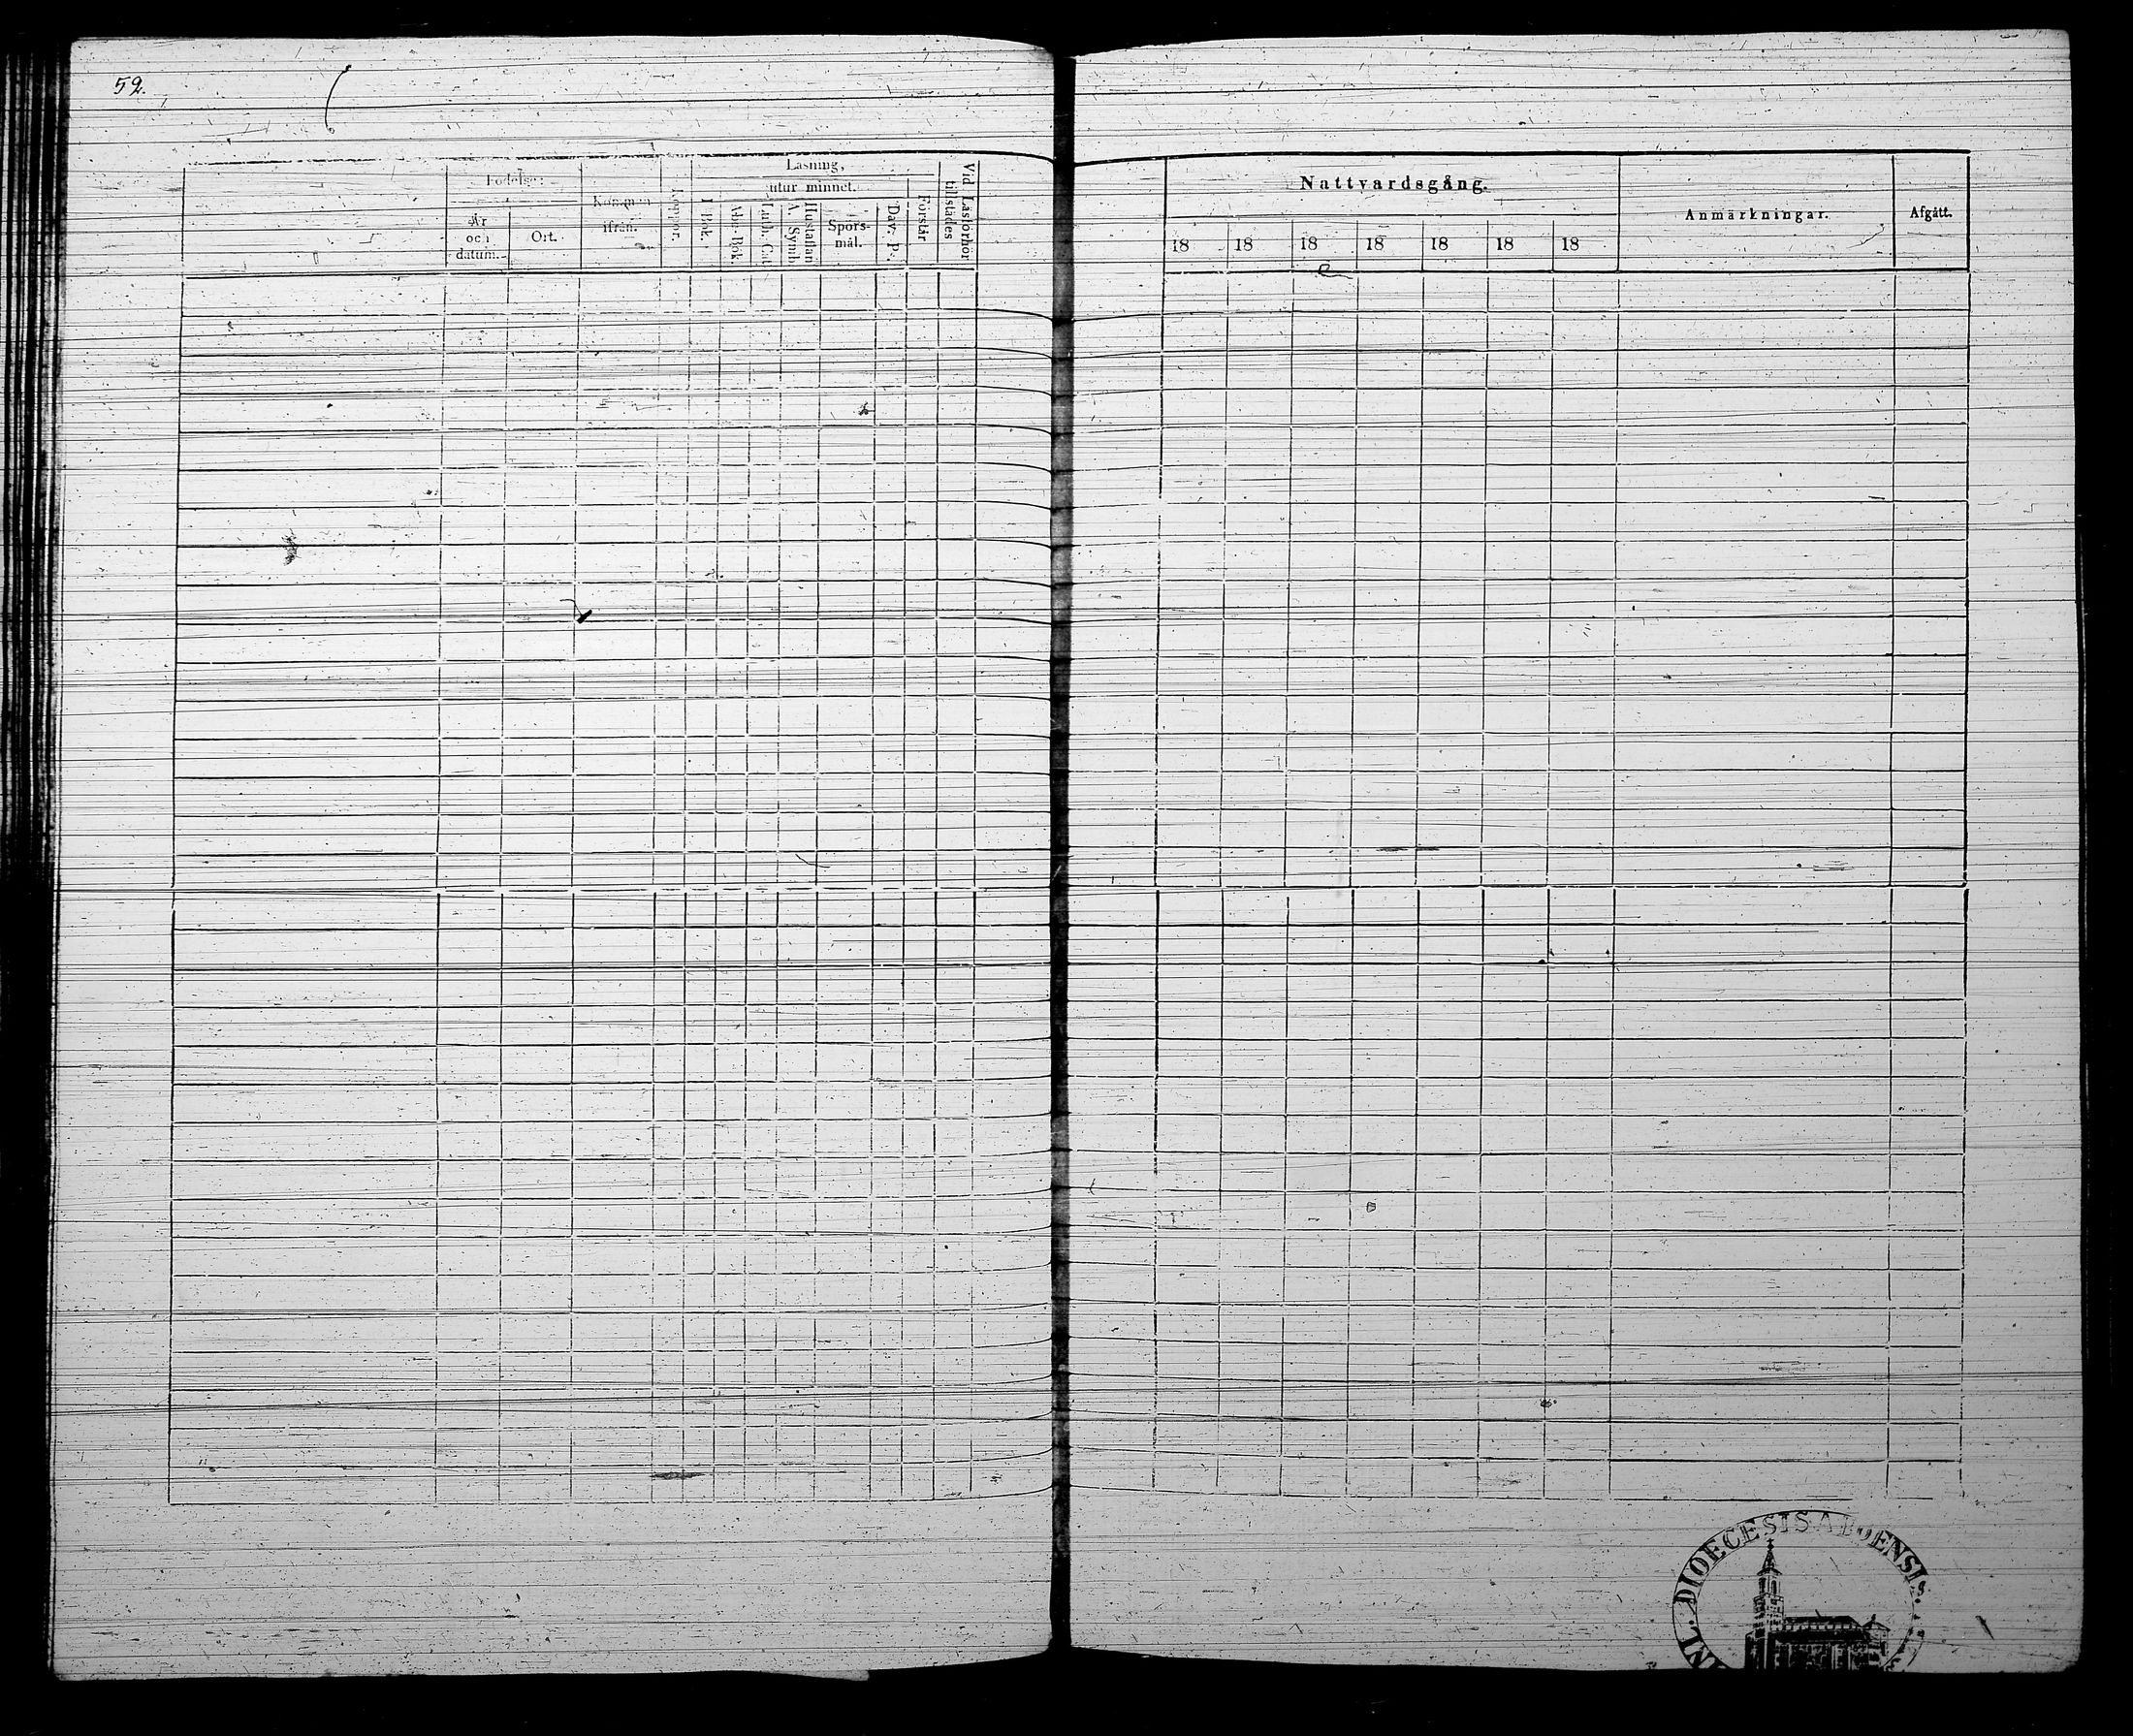 52.
Födelse:
År och datum.
Ort.
Kommen ifrån.
Koppor.
Läsning,
utur minnet.
I Bok.
Abc-Bok.
Luth. Cat.
Hustaflan A. Symb.
Spörs-mål.
Dav. Ps.
Förstår
Vid Läsförhör tillstädes
Nattvardsgång.
18 18 18 18 18 18 18
Anmärkningar.
Afgått.
DIOECESIS ABOENSIS.